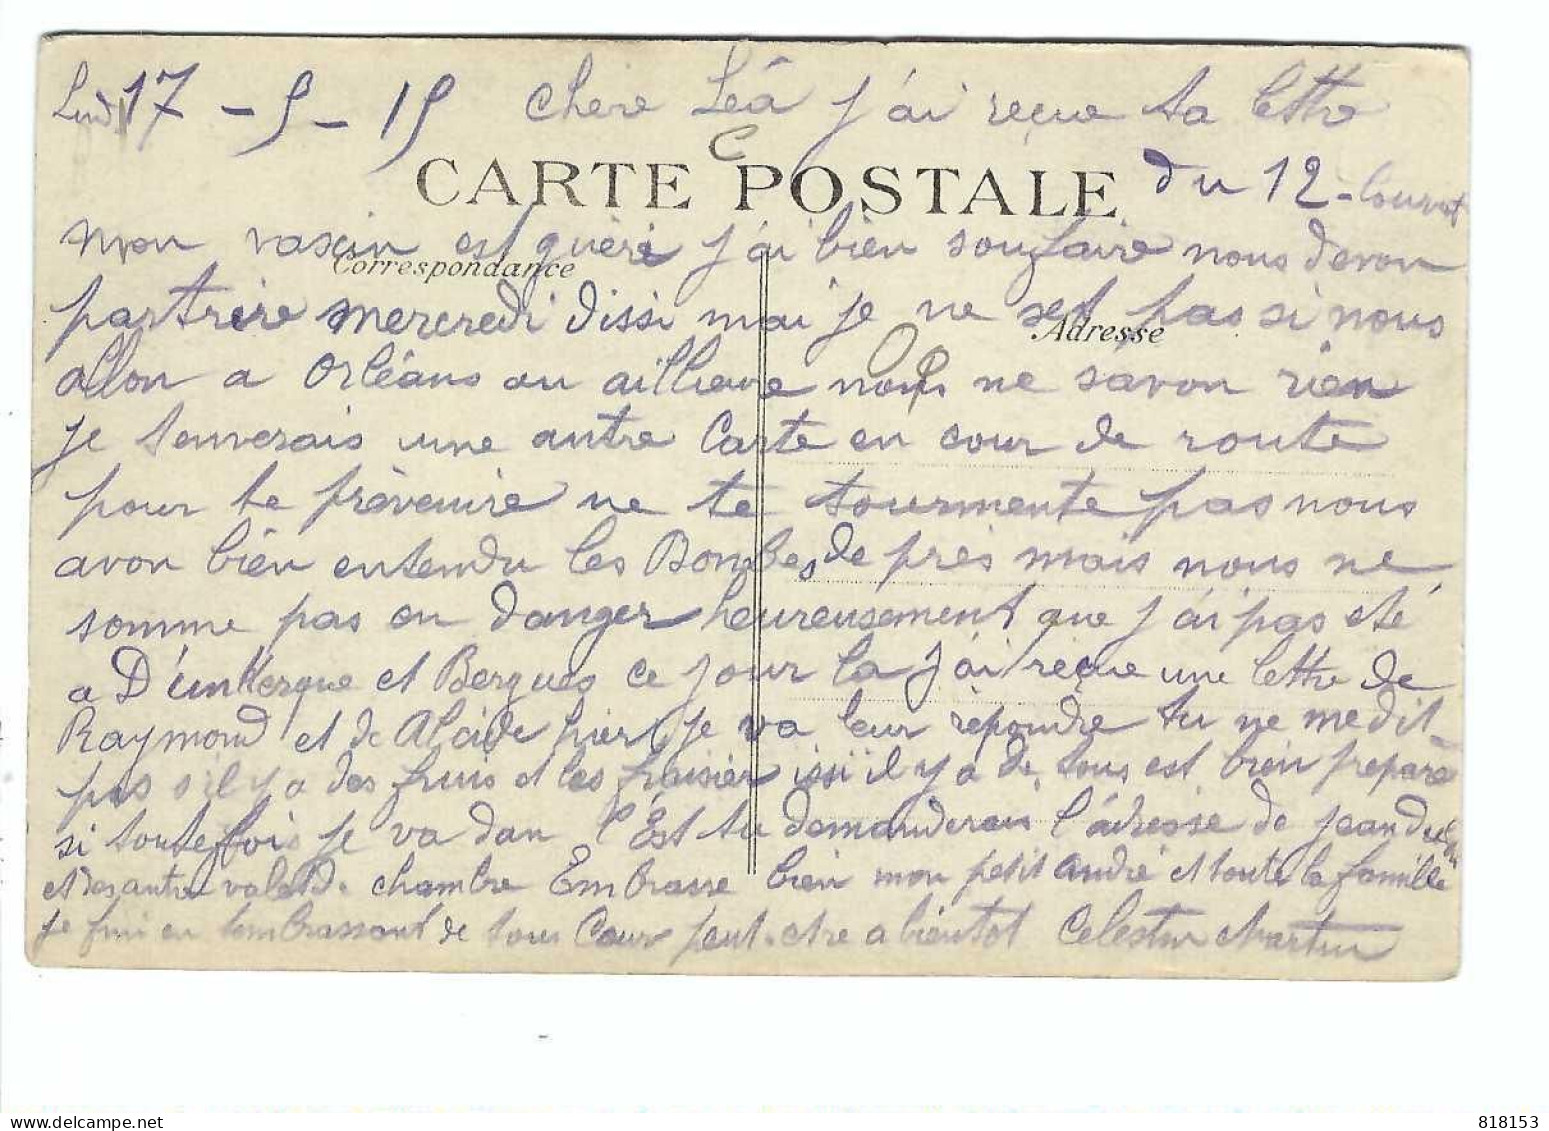 Lud 17 - 5 - 15 chere Léâ j'ai reçue ta lettre
CARTE POSTALE
du 12 - Courant
mon vaxin est guèri j'ai bien souffaire nous devon
Correspondance
partrire mercredi dissi mai je ne set pas si nous
Adresse
allon a Orléans ou aillieure nous ne savon rien
je t'enverais une autre Carte en cour de route
pour te prèvenire ne te tourmente pas nous
avon bien entendu les Bombes de près mais nous ne
somme pas en danger heureusement que j'ai pas eté
a D'unkerque et Bergues ce jour la j'ai reçue une lettre de
Raymond et de Alcide hier je va leur rèpondre tu ne me dit
pas s'il y a des fruis et les fraisier issi il y a de tous est bien preparè
si toutefois je va dan l'Est tu demanderais l'adresse de jean
et des autre valet de chambre Embrasse bien mon petit andré et toute la famille
je fini en t'embrassant de tous Cour peut-etre a bientot Celestin Martin
818153